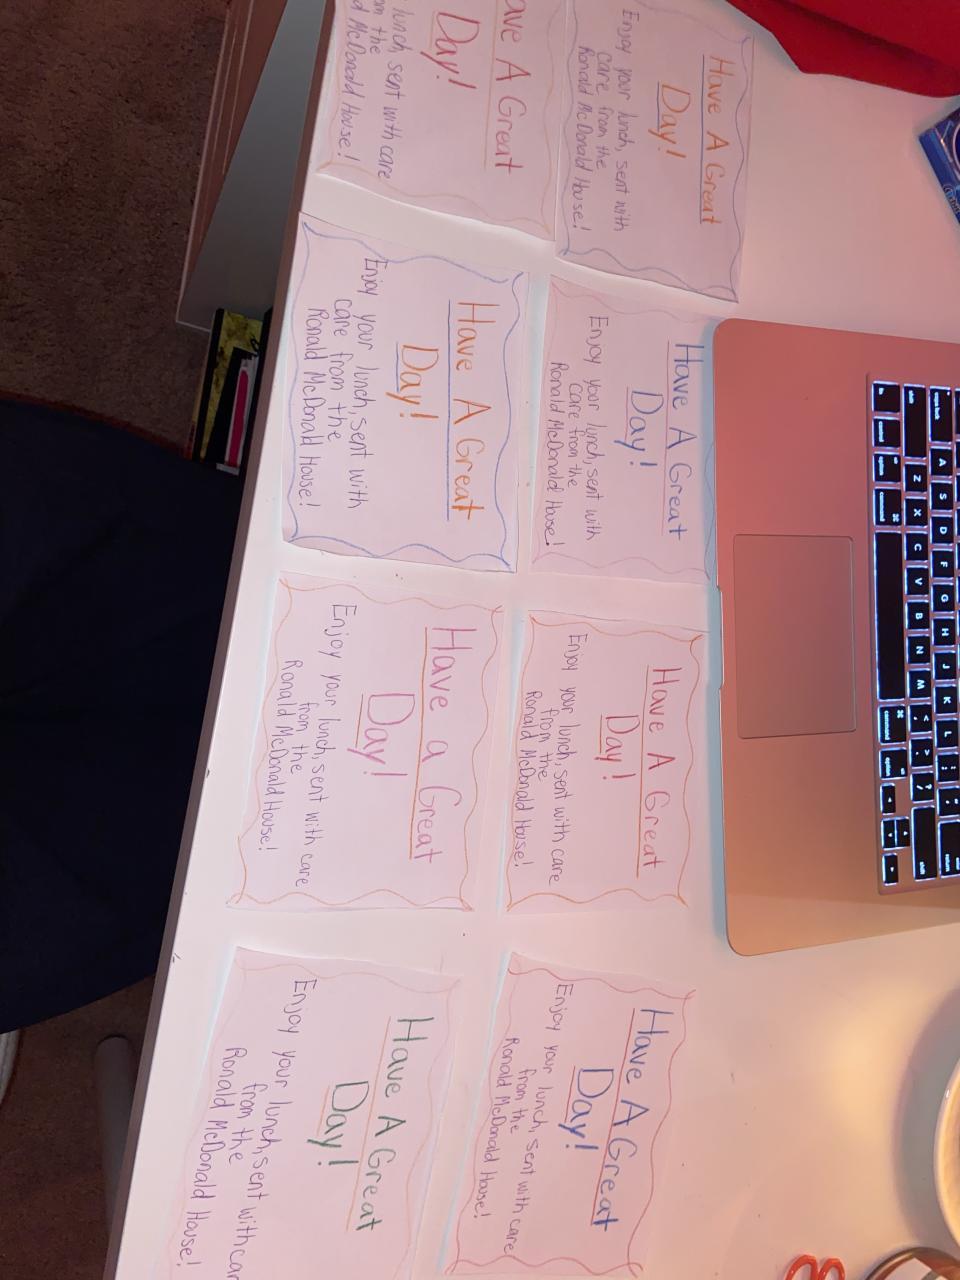 Have A Great
Day!
Enjoy your lunch, sent with
care from the
Ronald McDonald House!
ave A Great
Day!
lunch, sent with care
om the
d McDonald House!
Have A Great
Day!
Enjoy your lunch, sent with
care from the
Ronald McDonald House!
Have A Great
Day!
Enjoy your lunch, sent with
care from the
Ronald McDonald House!
Have A Great
Day!
Enjoy your lunch, sent with care
from the
Ronald McDonald House!
Have a Great
Day!
Enjoy your lunch, sent with care
from the
Ronald McDonald House!
Have A Great
Day!
Enjoy your lunch, sent with care
from the
Ronald McDonald House!
Have A Great
Day!
Enjoy your lunch, sent with car
from the
Ronald McDonald House!
A S D F G H J K L : ;
Z X C V B N M < , > . ? /
command
command option